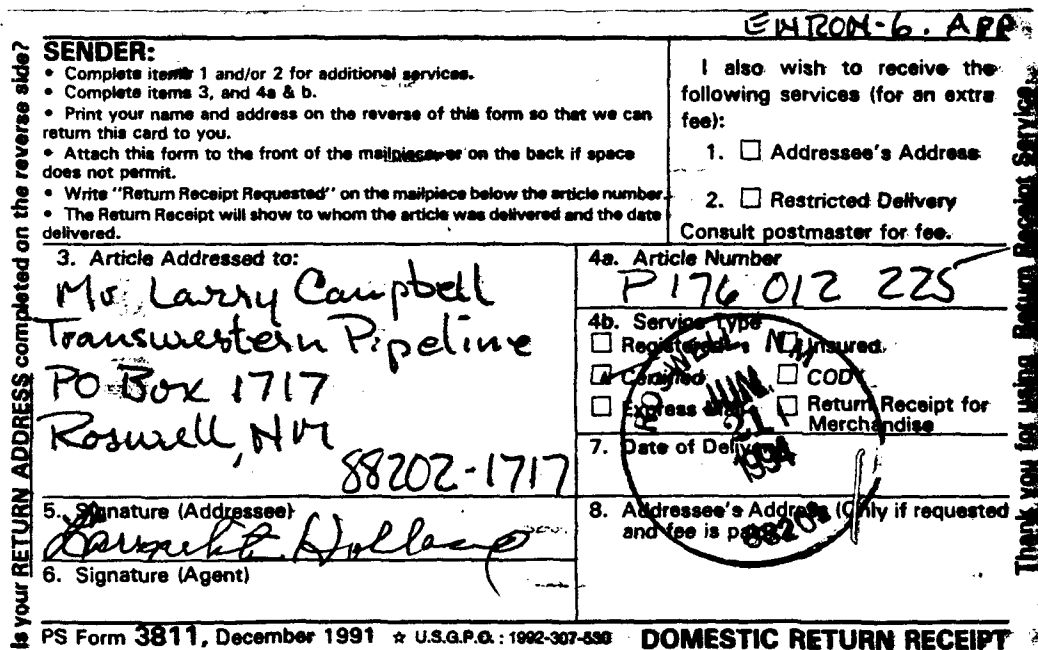 ENRON-6. APP
Is your RETURN ADDRESS completed on the reverse side?
SENDER:
• Complete items 1 and/or 2 for additional services.
• Complete items 3, and 4a & b.
• Print your name and address on the reverse of this form so that we can
return this card to you.
• Attach this form to the front of the mailpiece, or on the back if space
does not permit.
• Write "Return Receipt Requested" on the mailpiece below the article number
• The Return Receipt will show to whom the article was delivered and the date
delivered.
I also wish to receive the
following services (for an extra
fee):
1. ☐ Addressee's Address
2. ☐ Restricted Delivery
Consult postmaster for fee.
3. Article Addressed to:
Mr Larry Campbell
Transwestern Pipeline
PO Box 1717
Roswell, NM
88202-1717
4a. Article Number
P 176 012 225
4b. Service Type
☐ Registered ☐ Insured
☑ Certified ☐ COD
☐ Express Mail ☐ Return Receipt for
Merchandise
7. Date of Delivery
ROSWELL NM
JUN
21
1994
88201
5. Signature (Addressee)
Holland
6. Signature (Agent)
8. Addressee's Address (Only if requested
and fee is paid)
PS Form 3811, December 1991 ☆ U.S.G.P.O.: 1992-307-530 DOMESTIC RETURN RECEIPT
Thank you for using Return Receipt Service.